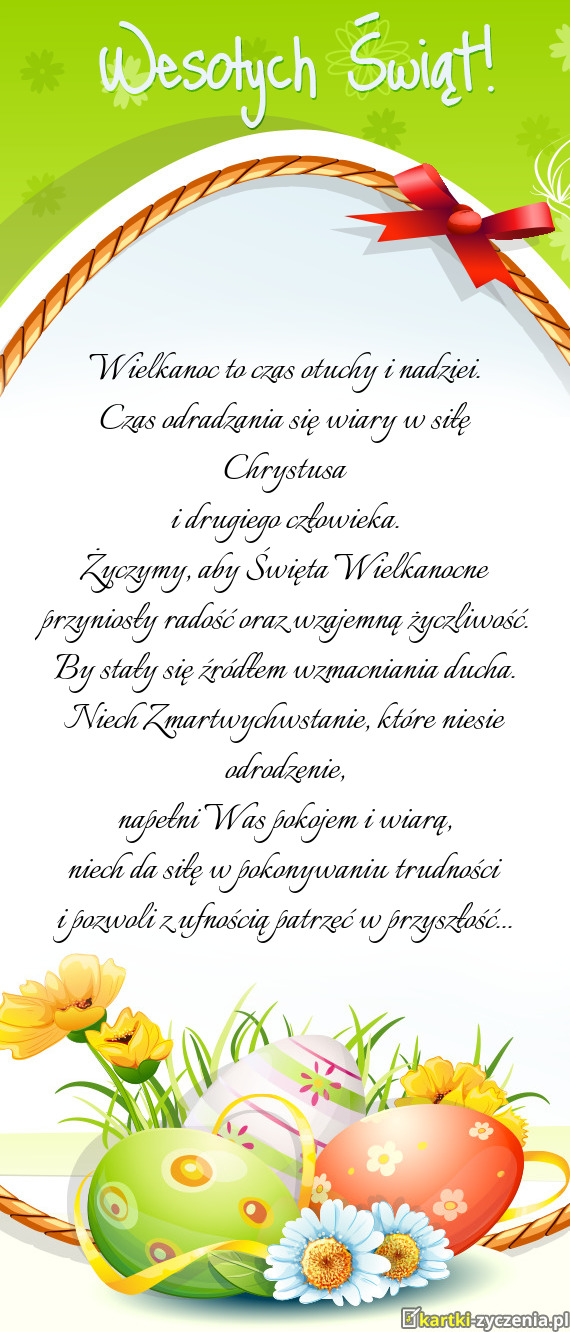 Wesołych Świąt!
Wielkanoc to czas otuchy i nadziei.
Czas odradzania się wiary w siłę
Chrystusa
i drugiego człowieka.
Życzymy, aby Święta Wielkanocne
przyniosły radość oraz wzajemną życzliwość.
By stały się źródłem wzmacniania ducha.
Niech Zmartwychwstanie, które niesie
odrodzenie,
napełni Was pokojem i wiarą,
niech da siłę w pokonywaniu trudności
i pozwoli z ufnością patrzeć w przyszłość...
kartki-zyczenia.pl